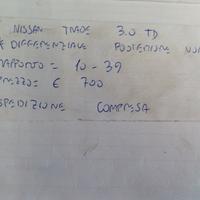 NISSAN TRADE 3.0 TD
DIFFERENZIALE POSTERIORE
RAPPORTO = 10 - 39
PREZZO = € 700
SPEDIZIONE COMPRESA